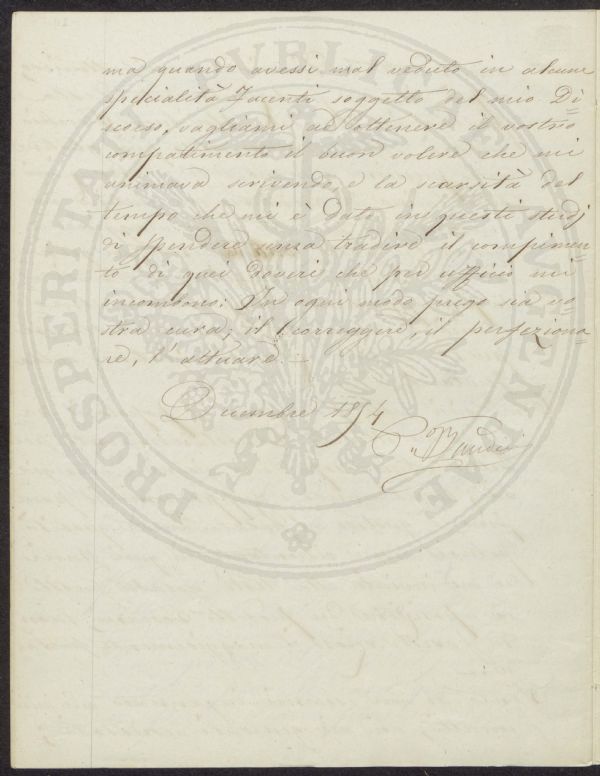 ma quando avessi mal veduto in alcune
specialità facenti soggetto del mio Di=
scorso, vagliami ad ottenere il vostro
compatimento il buon volere che mi
animava scrivendo, e la scarsità del
tempo che mi è dato in questi studj
di spendere senza tradire il compimen=
to di quei doveri che per ufficio mi
incombono: In ogni modo prego sia vo=
stra cura; il correggere, il perfeziona=
re, l'attuare.
Dicembre 1854
PROSPERITATI PVBLICAE AVGENDAE